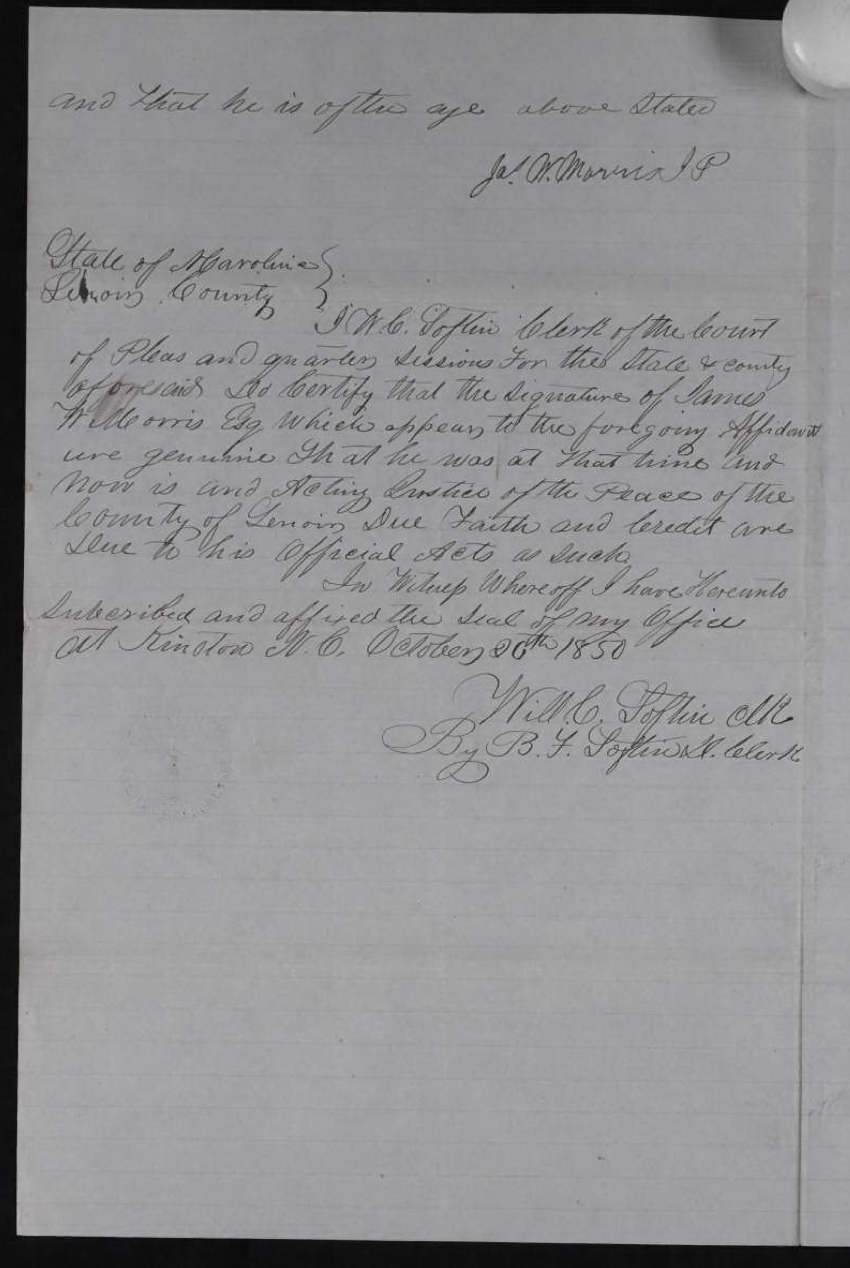 and that he is of the age above Stated
Jas. W. Morris J P
State of N Carolina }
Lenoir County }
I W C. Loftin Clerk of the Court
of Pleas and quarter Sessions For the State & county
aforesaid Do Certify that the Signature of James
W Morris Esq which appears to the foregoing Affidavit
are genuine that he was at that time and
Now is and Acting Justice of the Peace of the
County of Lenoir Due Faith and Credit are
Due to his Official Acts as Such
In Witness Whereoff I have Hereunto
Subscribed and affixed the Seal of my Office
at Kinston N. C. October 26th 1850
Will. C. Loftin Clk
By B. F. Loftin D. Clerk